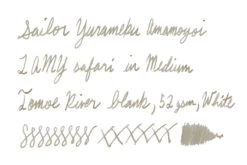 Sailor Yurameku Amamoyoi
LAMY safari in Medium
Tomoe River blank, 52 gsm, White